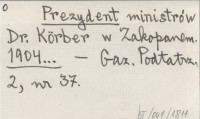 Prezydent ministrów
Dr. Körber w Zakopanem.
1904... — Gaz. Podtatrz.
2, nr 37.